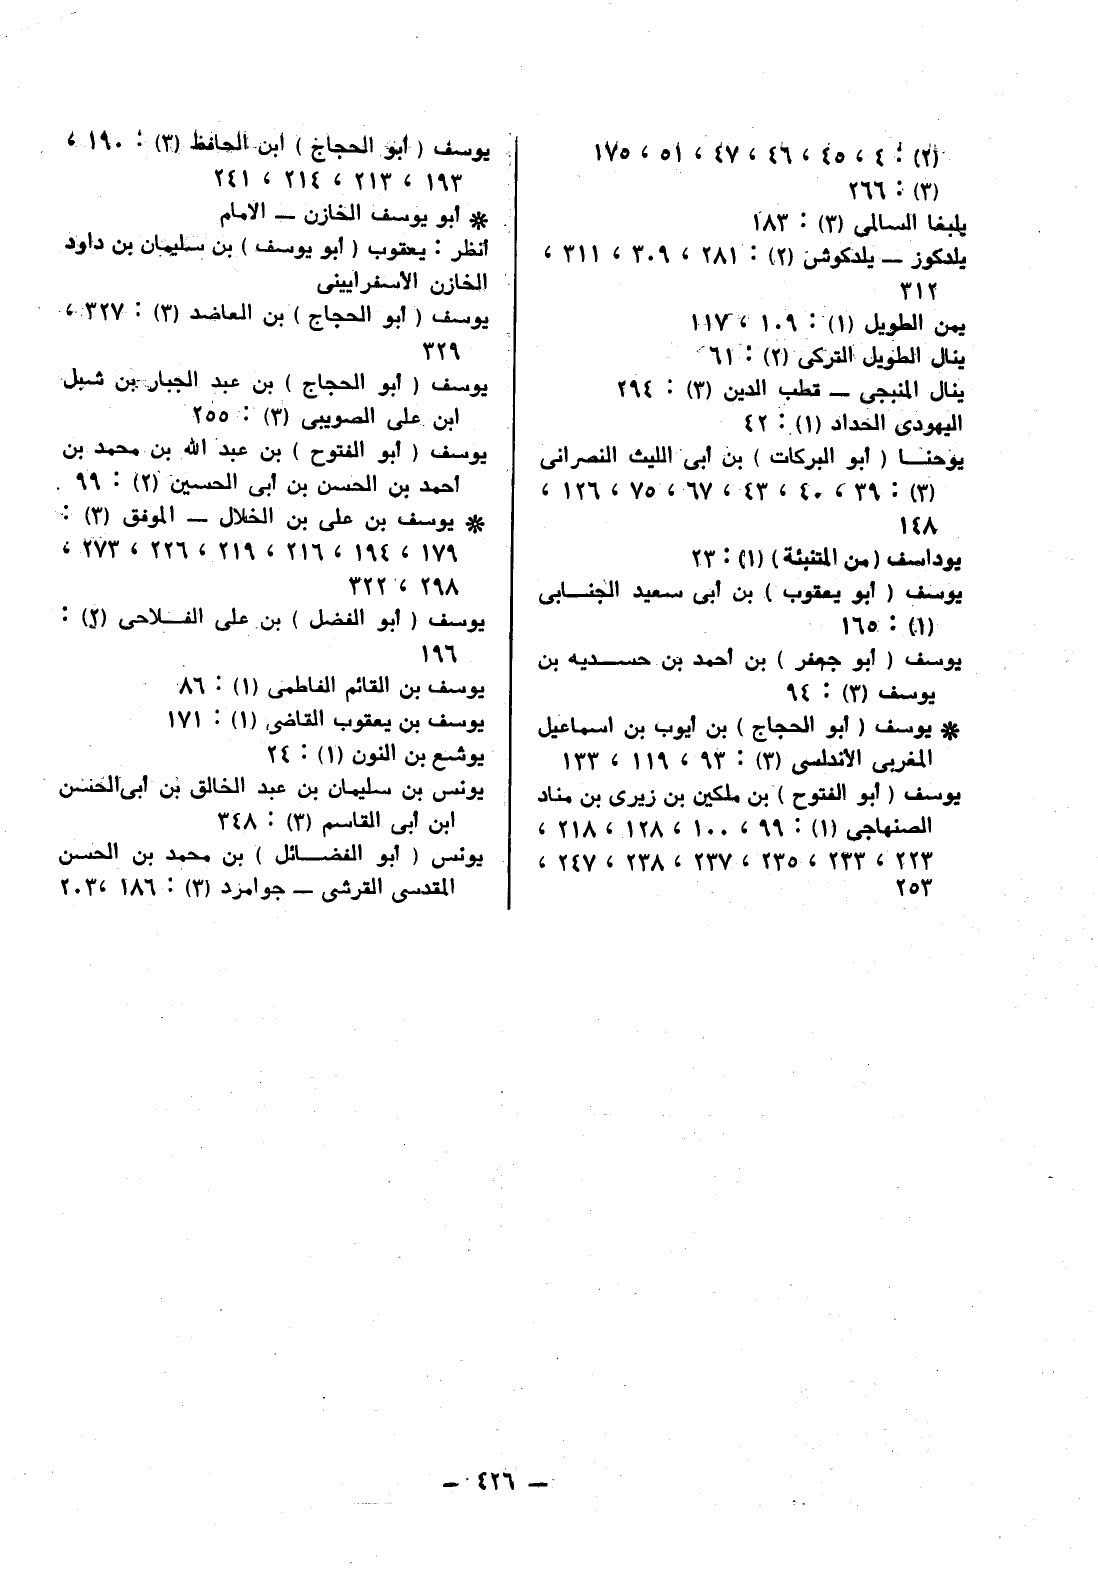 (٢) : ٤ ، ٤٥ ، ٤٦ ، ٤٧ ، ٥١ ، ١٧٥
(٣) : ٢٦٦
يلبغا السالمى (٣) : ١٨٣
يلدكوز ــ يلدكوش (٢) : ٢٨١ ، ٣٠٩ ، ٣١١ ،
٣١٢
يمن الطويل (١) : ١٠٩ ، ١١٧
ينال الطويل التركى (٢) : ٦١
ينال المنبجى ــ قطب الدين (٣) : ٢٩٤
اليهودى الحداد (١) : ٤٢
يوحنــا ( أبو البركات ) بن أبى الليث النصرانى
(٣) : ٣٩ ، ٤٠ ، ٤٣ ، ٦٧ ، ٧٥ ، ١٢٦ ،
١٤٨
يوداسف (من المتنبئة) (١) : ٢٣
يوسف ( أبو يعقوب ) بن أبى سعيد الجنــابى
(١) : ١٦٥
يوسف ( أبو جعفر ) بن أحمد بن حســديه بن
يوسف (٣) : ٩٤
* يوسف ( أبو الحجاج ) بن أيوب بن اسماعيل
المغربى الأندلسى (٣) : ٩٣ ، ١١٩ ، ١٣٣
يوسف ( أبو الفتوح ) بن ملكين بن زيرى بن مناد
الصنهاجى (١) : ٩٩ ، ١٠٠ ، ١٢٨ ، ٢١٨ ،
٢٢٣ ، ٢٣٣ ، ٢٣٥ ، ٢٣٧ ، ٢٣٨ ، ٢٤٧ ،
٢٥٣
يوسف ( أبو الحجاج ) ابن الحافظ (٣) : ١٩٠ ،
١٩٣ ، ٢١٣ ، ٢١٤ ، ٢٤١
* أبو يوسف الخازن ــ الامام
أنظر : يعقوب ( أبو يوسف ) بن سليمان بن داود
الخازن الأسفرايينى
يوسف ( أبو الحجاج ) بن العاضد (٣) : ٣٢٧ ،
٣٢٩
يوسف ( أبو الحجاج ) بن عبد الجبار بن شبل
ابن على الصويبى (٣) : ٢٥٥
يوسف ( أبو الفتوح ) بن عبد الله بن محمد بن
أحمد بن الحسن بن أبى الحسين (٢) : ٩٩
* يوسف بن على بن الخلال ــ الموفق (٣) :
١٧٩ ، ١٩٤ ، ٢١٦ ، ٢١٩ ، ٢٢٦ ، ٢٧٣ ،
٢٩٨ ، ٣٢٢
يوسف ( أبو الفضل ) بن على الفــلاحى (٢) :
١٩٦
يوسف بن القائم الفاطمى (١) : ٨٦
يوسف بن يعقوب القاضى (١) : ١٧١
يوشع بن النون (١) : ٢٤
يونس بن سليمان بن عبد الخالق بن أبى الحسن
ابن أبى القاسم (٣) : ٣٤٨
يونس ( أبو الفضــائل ) بن محمد بن الحسن
المقدسى القرشى ــ جوامرد (٣) : ١٨٦ ، ٢٠٣
ــ ٤٢٦ ــ